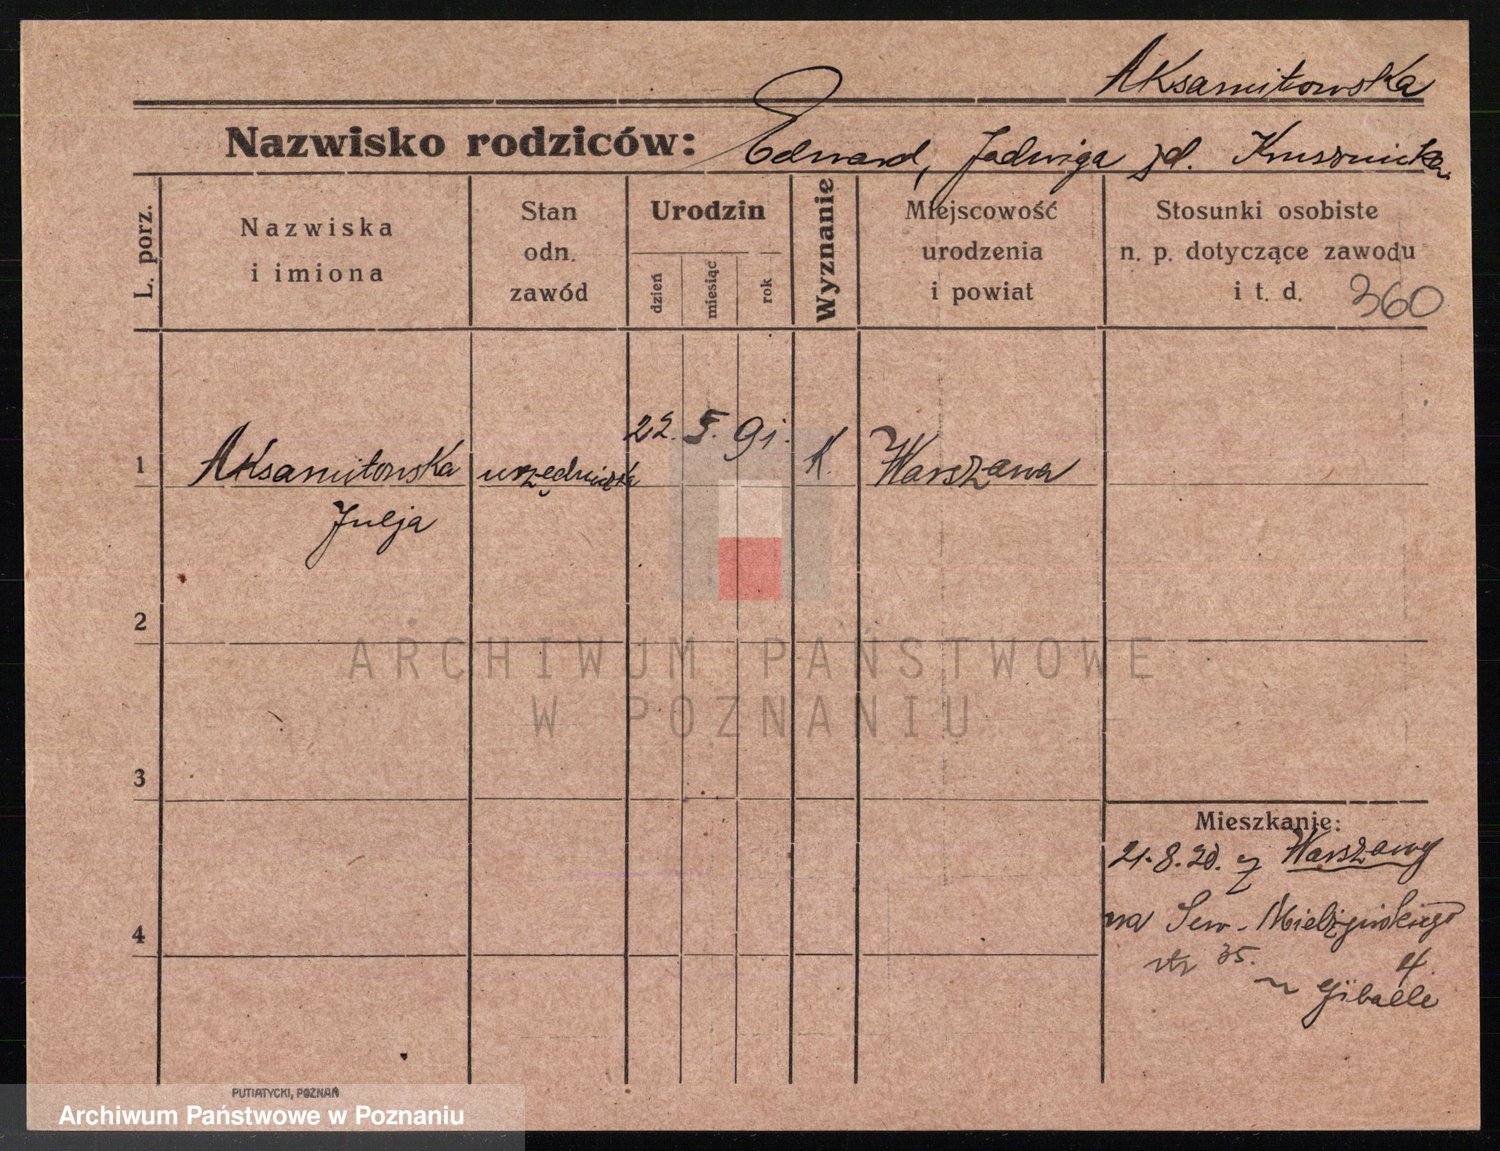 Aksamitowska
Nazwisko rodziców: Edward, Jadwiga zd.
L. porz.
Nazwiska
i imiona
Stan
odn.
zawód
Urodzin
dzień
miesiąc
rok
Wyznanie
Miejscowość
urodzenia
i powiat
Stosunki osobiste
n. p. dotyczące zawodu
i t. d. 360
1 Aksamitowska urzędniczka 22. 5. 91. k. Warszawa
Julja
2
ARCHIWUM PAŃSTWOWE
W POZNANIU
3
Mieszkanie:
21.8.20. z Warszawy
na Sew. Mielżyńskiego
4
4.
35.
PUTIATYCKI, POZNAŃ
Archiwum Państwowe w Poznaniu